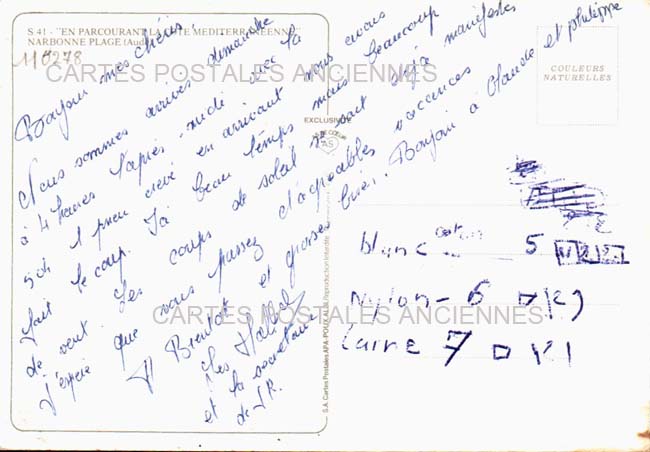 S 41 - "EN PARCOURANT LA COTE MEDITERRANEENNE"
NARBONNE PLAGE (Aude)
110278
CARTES POSTALES ANCIENNES
COULEURS
NATURELLES
EXCLUSIVE
AS
Bonjour mes chéris.
Nous sommes arrivés dimanche
à 4 heures l'après-midi avec la
504 1 pneu crevé en arrivant nous avons
fait le coup. Ià beau temps mais beaucoup
de vent. Les coups de soleil se sont déjà manifestés
J'espère que vous passez d'agréables vacances
A Bientôt et grosses bises. Bonjour à Claude et philippe
Les
et la secrétaire
de J.R.
S.A. Cartes Postales APA-POUX ALBI Reproduction Interdite
CARTES POSTALES ANCIENNES
blanc coton 5
Nylon - 6
Laine 7